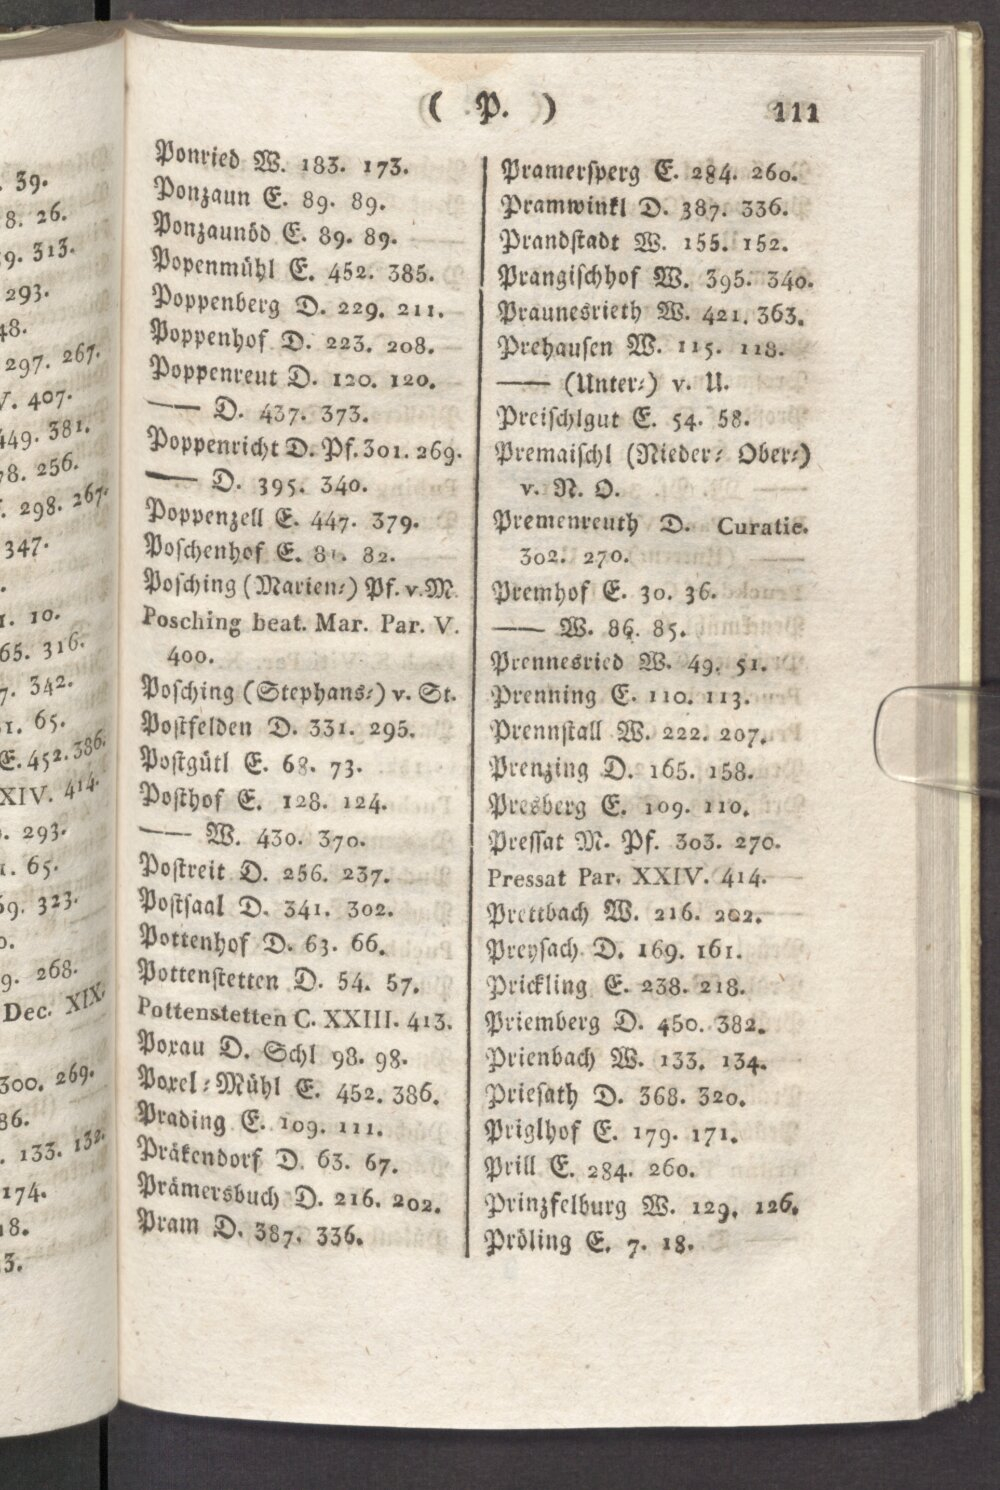 39.
8. 26.
9. 313.
293.
48.
297. 267.
V. 407.
449. 381.
78. 256.
298. 267.
347.
1. 10.
65. 316.
7. 342.
1. 65.
E. 452. 386.
XIV. 414.
293.
1. 65.
59. 323.
9. 268.
Dec. XIX.
300. 269.
86.
133. 132.
174.
18.
3.
( P. ) 111
Ponried W. 183. 173.
Ponzaun E. 89. 89.
Ponzaunöd E. 89. 89.
Popenmühl E. 452. 385.
Poppenberg D. 229. 211.
Poppenhof D. 223. 208.
Poppenreut D. 120. 120.
—— D. 437. 373.
Poppenricht D. Pf. 301. 269.
—— D. 395. 340.
Poppenzell E. 447. 379.
Poschenhof E. 81. 82.
Posching (Marien⸗) Pf. v. M.
Posching beat. Mar. Par. V.
400.
Posching (Stephans⸗) v. St.
Postfelden D. 331. 295.
Postgütl E. 68. 73.
Posthof E. 128. 124.
—— W. 430. 370.
Postreit D. 256. 237.
Postsaal D. 341. 302.
Pottenhof D. 63. 66.
Pottenstetten D. 54. 57.
Pottenstetten C. XXIII. 413.
Poxau D. Schl 98. 98.
Poxel⸗Mühl E. 452. 386.
Prading E. 109. 111.
Präkendorf D. 63. 67.
Prämersbuch D. 216. 202.
Pram D. 387. 336.
Pramersperg E. 284. 260.
Pramwinkl D. 387. 336.
Prandstadt W. 155. 152.
Prangischhof W. 395. 340.
Praunesrieth W. 421. 363.
Prehausen W. 115. 118.
—— (Unter⸗) v. U.
Preischlgut E. 54. 58.
Premaischl (Nieder⸗ Ober⸗)
v. N. O.
Premenreuth D. Curatie.
302. 270.
Premhof E. 30. 36.
—— W. 86. 85.
Prennesried W. 49. 51.
Prenning E. 110. 113.
Prennstall W. 222. 207.
Prenzing D. 165. 158.
Presberg E. 109. 110.
Pressat M. Pf. 303. 270.
Pressat Par. XXIV. 414.
Prettbach W. 216. 202.
Preysach D. 169. 161.
Prickling E. 238. 218.
Priemberg D. 450. 382.
Prienbach W. 133. 134.
Priesath D. 368. 320.
Priglhof E. 179. 171.
Prill E. 284. 260.
Prinzfelburg W. 129. 126.
Pröling E. 7. 18.